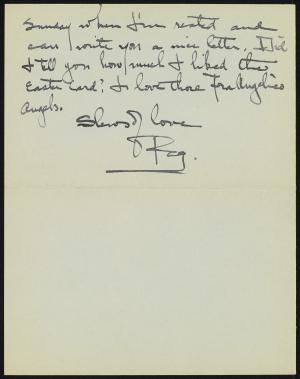 Sunday when I'm rested and
can write you a nice letter. Did
I tell you how much I liked the
Easter Card? I love those Fra Angelico
Angels.
Slews of love
Peg.